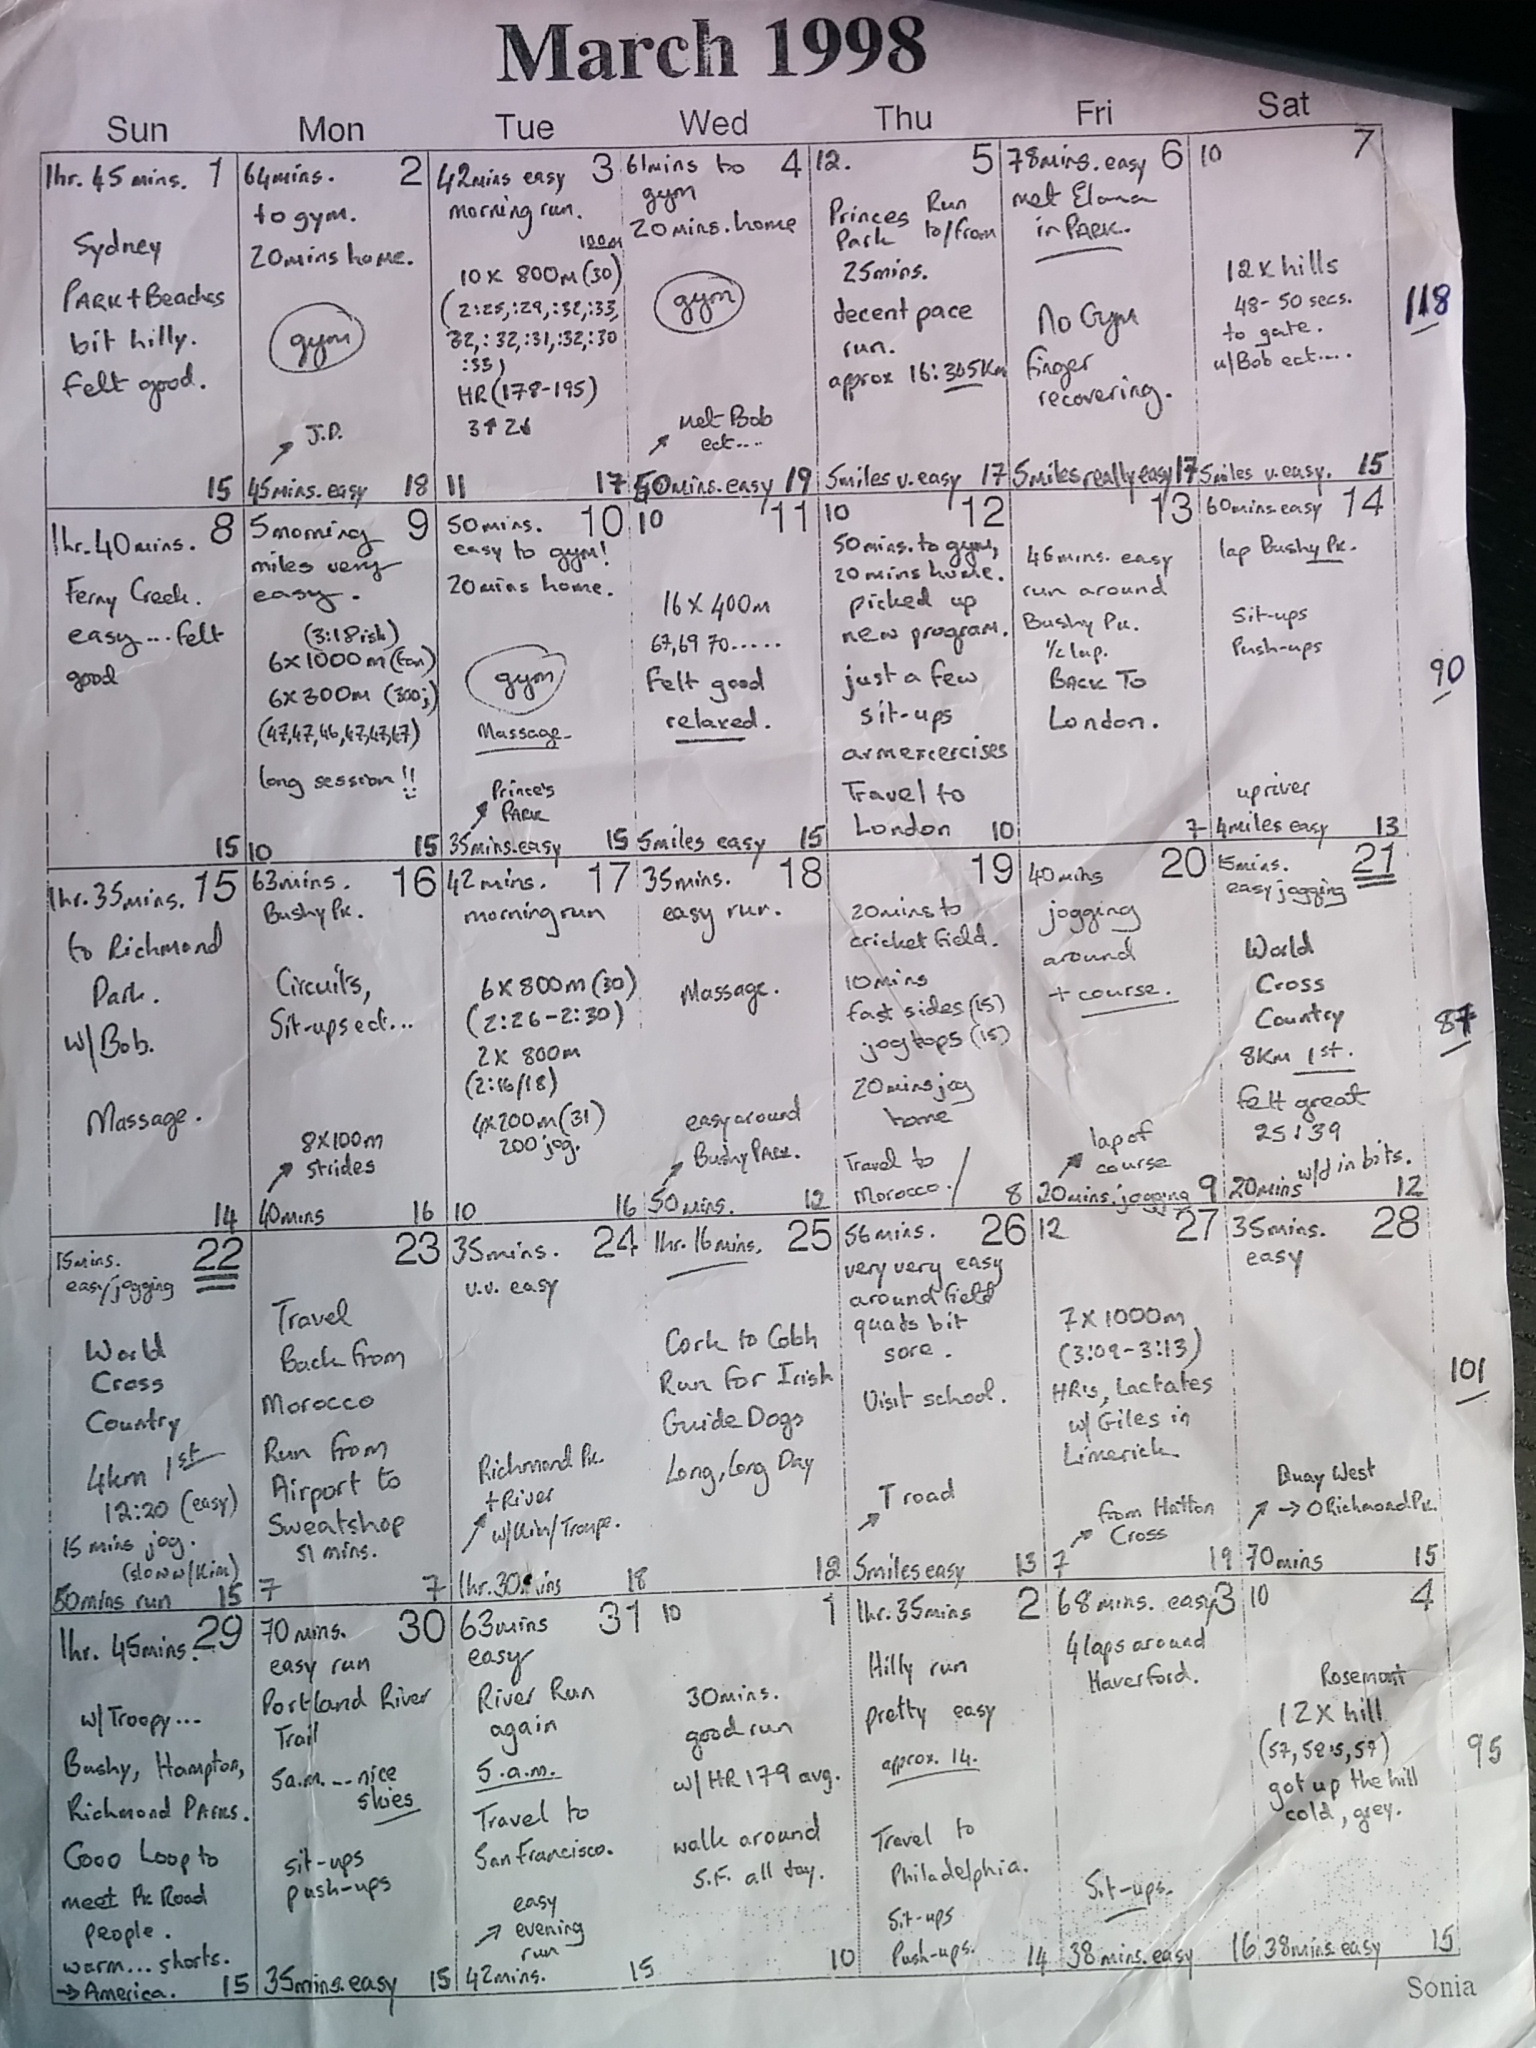 March 1998
Sun Mon Tue Wed Thu Fri Sat
1hr. 45 mins. 1
Sydney
PARK + Beaches
bit hilly.
Felt good.
15
64mins. 2
to gym.
20mins home.
gym
J.D.
45mins. easy 18
42mins easy 3
morning run.
100m
10 x 800m (30)
(2:25, :29, :32, :33,
32, :32, :31, :32, :30
:33)
HR (178-195)
3↑ 2↓
11 17
61mins to 4
gym
20mins. home
gym
met Bob
ect....
50mins. easy 19
12. 5
Princes Run
Park to/from
25mins.
decent pace
run.
approx 16: 305Km
5miles v. easy 17
78mins. easy 6
met Elana
in PARK.
No Gym
finger
recovering.
5miles really easy 17
10 7
12 x hills
48-50 secs.
to gate.
w/Bob ect....
5miles v. easy. 15
118
1hr. 40 mins. 8
Ferny Creek.
easy... felt
good
15
5 morning 9
miles very
easy.
(3:18ish)
6x1000m (tan)
6x300m (300j)
(47,47,46,47,47,47)
long session!!
10 15
50mins. 10
easy to gym!
20mins home.
gym
Massage.
Prince's
PARK
35mins. easy 15
10 11
16 x 400m
67,69 70......
Felt good
relaxed.
5miles easy 15
10 12
50mins. to gym,
20mins home.
picked up
new program.
just a few
sit-ups
arm excercises
Travel to
London 10
13
46mins. easy
run around
Bushy Pk.
½ lap.
BACK TO
London.
7
60mins easy 14
lap Bushy Pk.
Sit-ups
Push-ups
up river
4miles easy 13
90
1hr. 35mins. 15
to Richmond
Park.
w/ Bob.
Massage.
14
63mins. 16
Bushy Pk.
Circuits,
Sit-ups ect...
8x100m
strides
40mins 16
42mins. 17
morning run
6x800m (30)
(2:26-2:30)
2x 800m
(2:16/18)
4x200m (31)
200 jog.
10 16
35mins. 18
easy run.
Massage.
easy around
Bushy PARK.
50mins. 12
19
20mins to
cricket field.
10mins
fast sides (15)
jog tops (15)
20mins jog
home
Travel to
Morocco. 8
40mins 20
jogging
around
+ course.
lap of
course
20mins. jogging 9
15mins. 21
easy jogging
World
Cross
Country
8Km 1st.
felt great
25:39
w/d in bits.
20mins 12
87
15mins. 22
easy jogging
World
Cross
Country
4km 1st
12:20 (easy)
15 mins jog.
(slow w/ Kim)
50mins run 15
23
Travel
Back from
Morocco
Run from
Airport to
Sweatshop
51 mins.
7 7
35mins. 24
v.v. easy
Richmond Pk.
+ River
w/Kim/Troupe.
1hr. 30mins 18
1hr. 16mins. 25
Cork to Cobh
Run for Irish
Guide Dogs
Long, Long Day
12
56mins. 26
very very easy
around field
quads bit
sore.
Visit school.
T road
5miles easy 13
12 27
7x1000m
(3:09-3:13)
HR's, Lactates
w/ Giles in
Limerick
from Hatton
Cross
7 19
35mins. 28
easy
Quay West
→ O Richmond Pk.
70mins 15
101
1hr. 45mins. 29
w/ Troopy...
Bushy, Hampton,
Richmond PARKS.
Good Loop to
meet Pk Road
people.
warm... shorts.
→ America. 15
70mins. 30
easy run
Portland River
Trail
5a.m.... nice
skies
sit-ups
push-ups
35mins. easy 15
63mins 31
easy
River Run
again
5.a.m.
Travel to
San Francisco.
easy
evening
run
42mins. 15
10 1
30mins.
good run
w/ HR 179 avg.
walk around
S.F. all day.
10
1hr. 35mins 2
Hilly run
pretty easy
approx. 14.
Travel to
Philadelphia.
Sit-ups
Push-ups. 14
68 mins. easy 3
4 laps around
Haverford.
Sit-ups.
38mins. easy 16
10 4
Rosemont
12 x hill
(57, 58's, 59)
got up the hill
cold, grey.
38mins. easy 15
95
Sonia